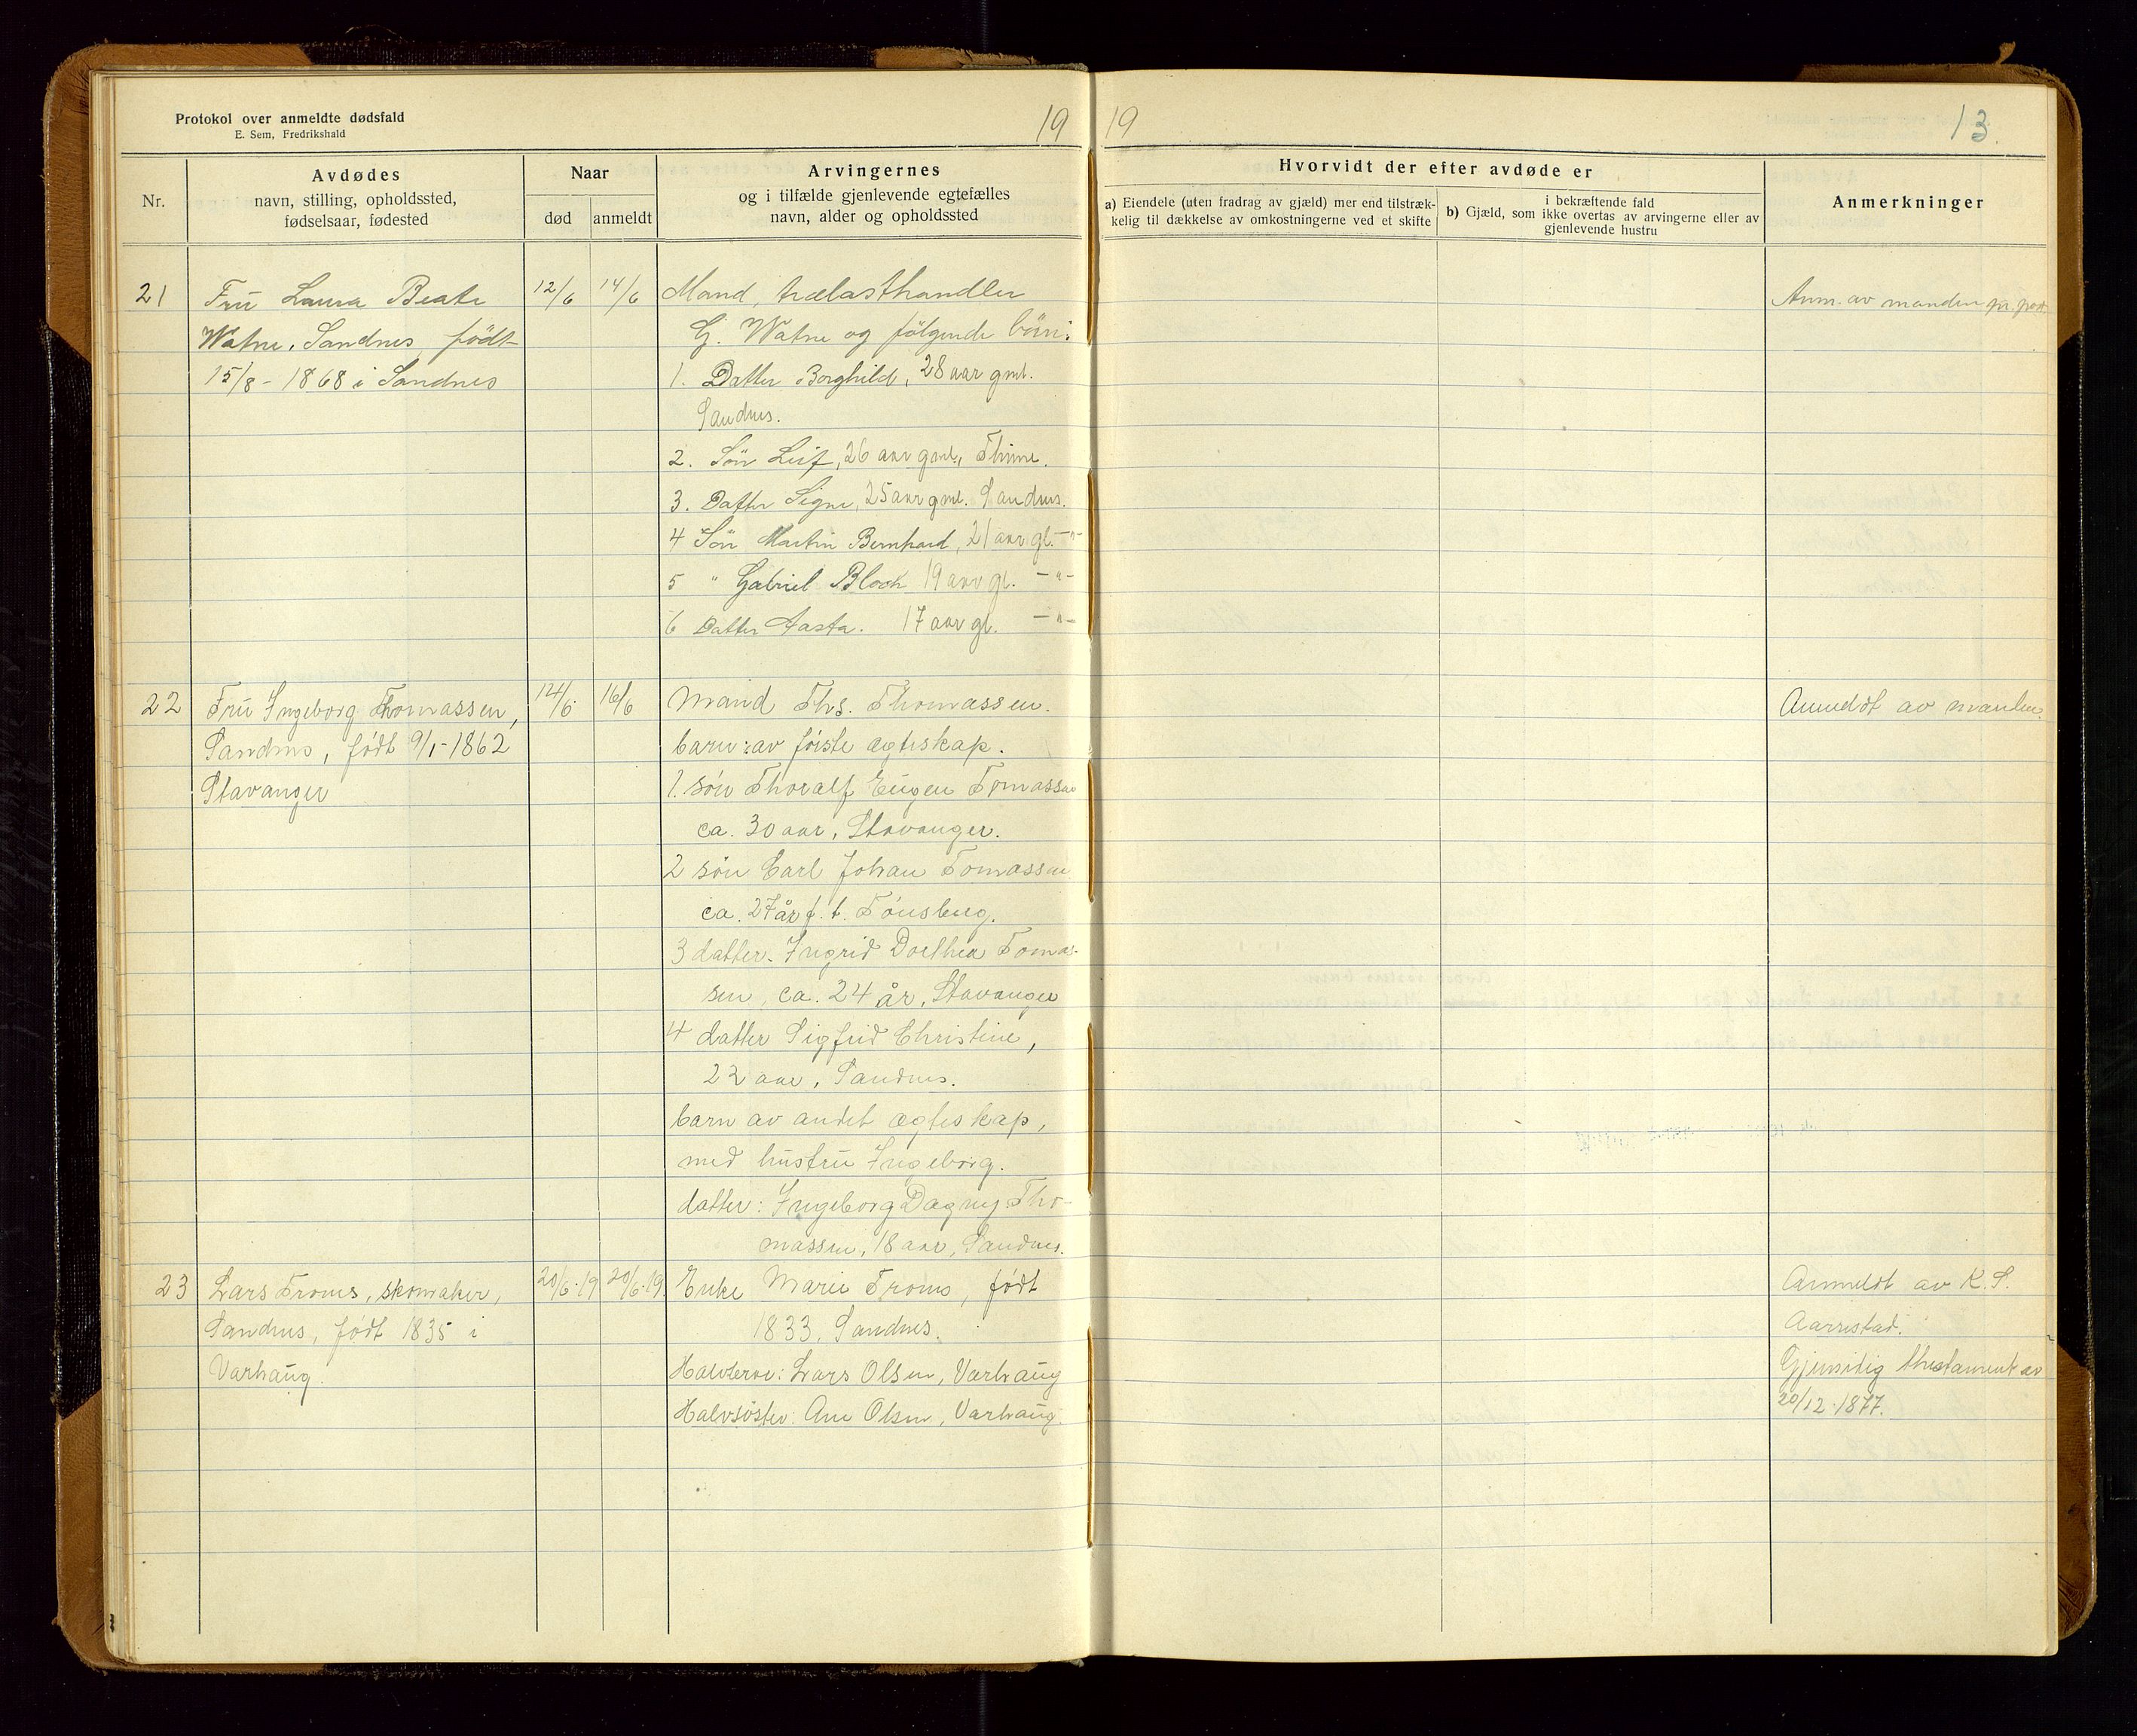 Protokol over anmeldte dødsfald
E. Sem, Fredrikshald
19
19
13
Nr.
Avdødes
navn, stilling, opholdssted,
fødselsaar, fødested
Naar
død
anmeldt
Arvingernes
og i tilfælde gjenlevende egtefælles
navn, alder og opholdssted
Hvorvidt der efter avdøde er
a) Eiendele (uten fradrag av gjæld) mer end tilstræk-
kelig til dækkelse av omkostningerne ved et skifte
i bekræftende fald
b) Gjæld, som ikke overtas av arvingerne eller av
gjenlevende hustru
Anmerkninger
21
Frū Laura Beate
Watne, Sandnes, født
15/8 - 1868 i Sandnes
12/6
14/6
Mand, trælasthandler
G. Watne og følgende børn:
1. Datter Borghild, 28 aar gml.
Sandnes.
2. Søn Leif, 26 aar gml, Thime.
3. Datter Signe, 25 aar gml. Sandnes.
4 Søn Martin Bernhard, 21 aar gl. -"-
5 " Gabriel Block 19 aar gl. -"-
6 Datter Aasta. 17 aar gl. -"-
Anm. av manden pr. post.
22
Frū Ingeborg Thomassen,
Sandnes, født 9/1-1862
Stavanger
14/6
16/6
Mand Ths. Thomassen.
barn: av første ægteskap.
1. søn Thoralf Eūgen Tomassen
ca. 30 aar, Stavanger.
2 søn Carl Johan Tomassen
ca. 27 år f. t. Tønsberg.
3 datter. Ingrid Dorthea Tomas-
sen, ca. 24 år, Stavanger
4 datter Sigfrid Christine,
22 aar, Sandnes.
barn av andet ægteskap,
med hūstrū Ingeborg.
datter: Ingeborg Dagny Tho-
massen, 18 aar, Sandnes.
Anmeldt av manden.
23
Lars Froms, skomaker,
Sandnes, født 1835 i
Varhaūg.
20/6.19
20/6.19.
Enke Marie Froms, født
1833, Sandnes.
Lars Olsen, Varhaūg
Halvsøster: Ane Olsen, Varhaūg.
Anmeldt av K. S.
Aarrestad.
Gjensidig thestament av
20/12-1877.